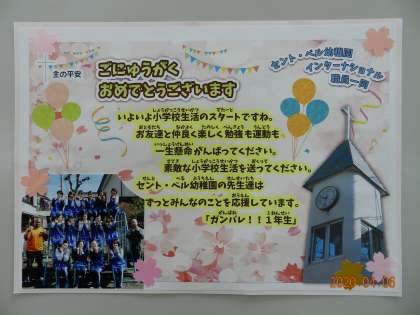 主の平安
ごにゅうがく
おめでとうございます
セント・ベル幼稚園
インターナショナル
職員一同
いよいよ小学校生活のスタートですね。
お友達と仲良く楽しく勉強も運動も、
一生懸命がんばってください。
素敵な小学校生活を送ってください。
セント・ベル幼稚園の先生達は
ずっとみんなのことを応援しています。
「ガンバレ！！１年生」
2020.04.06